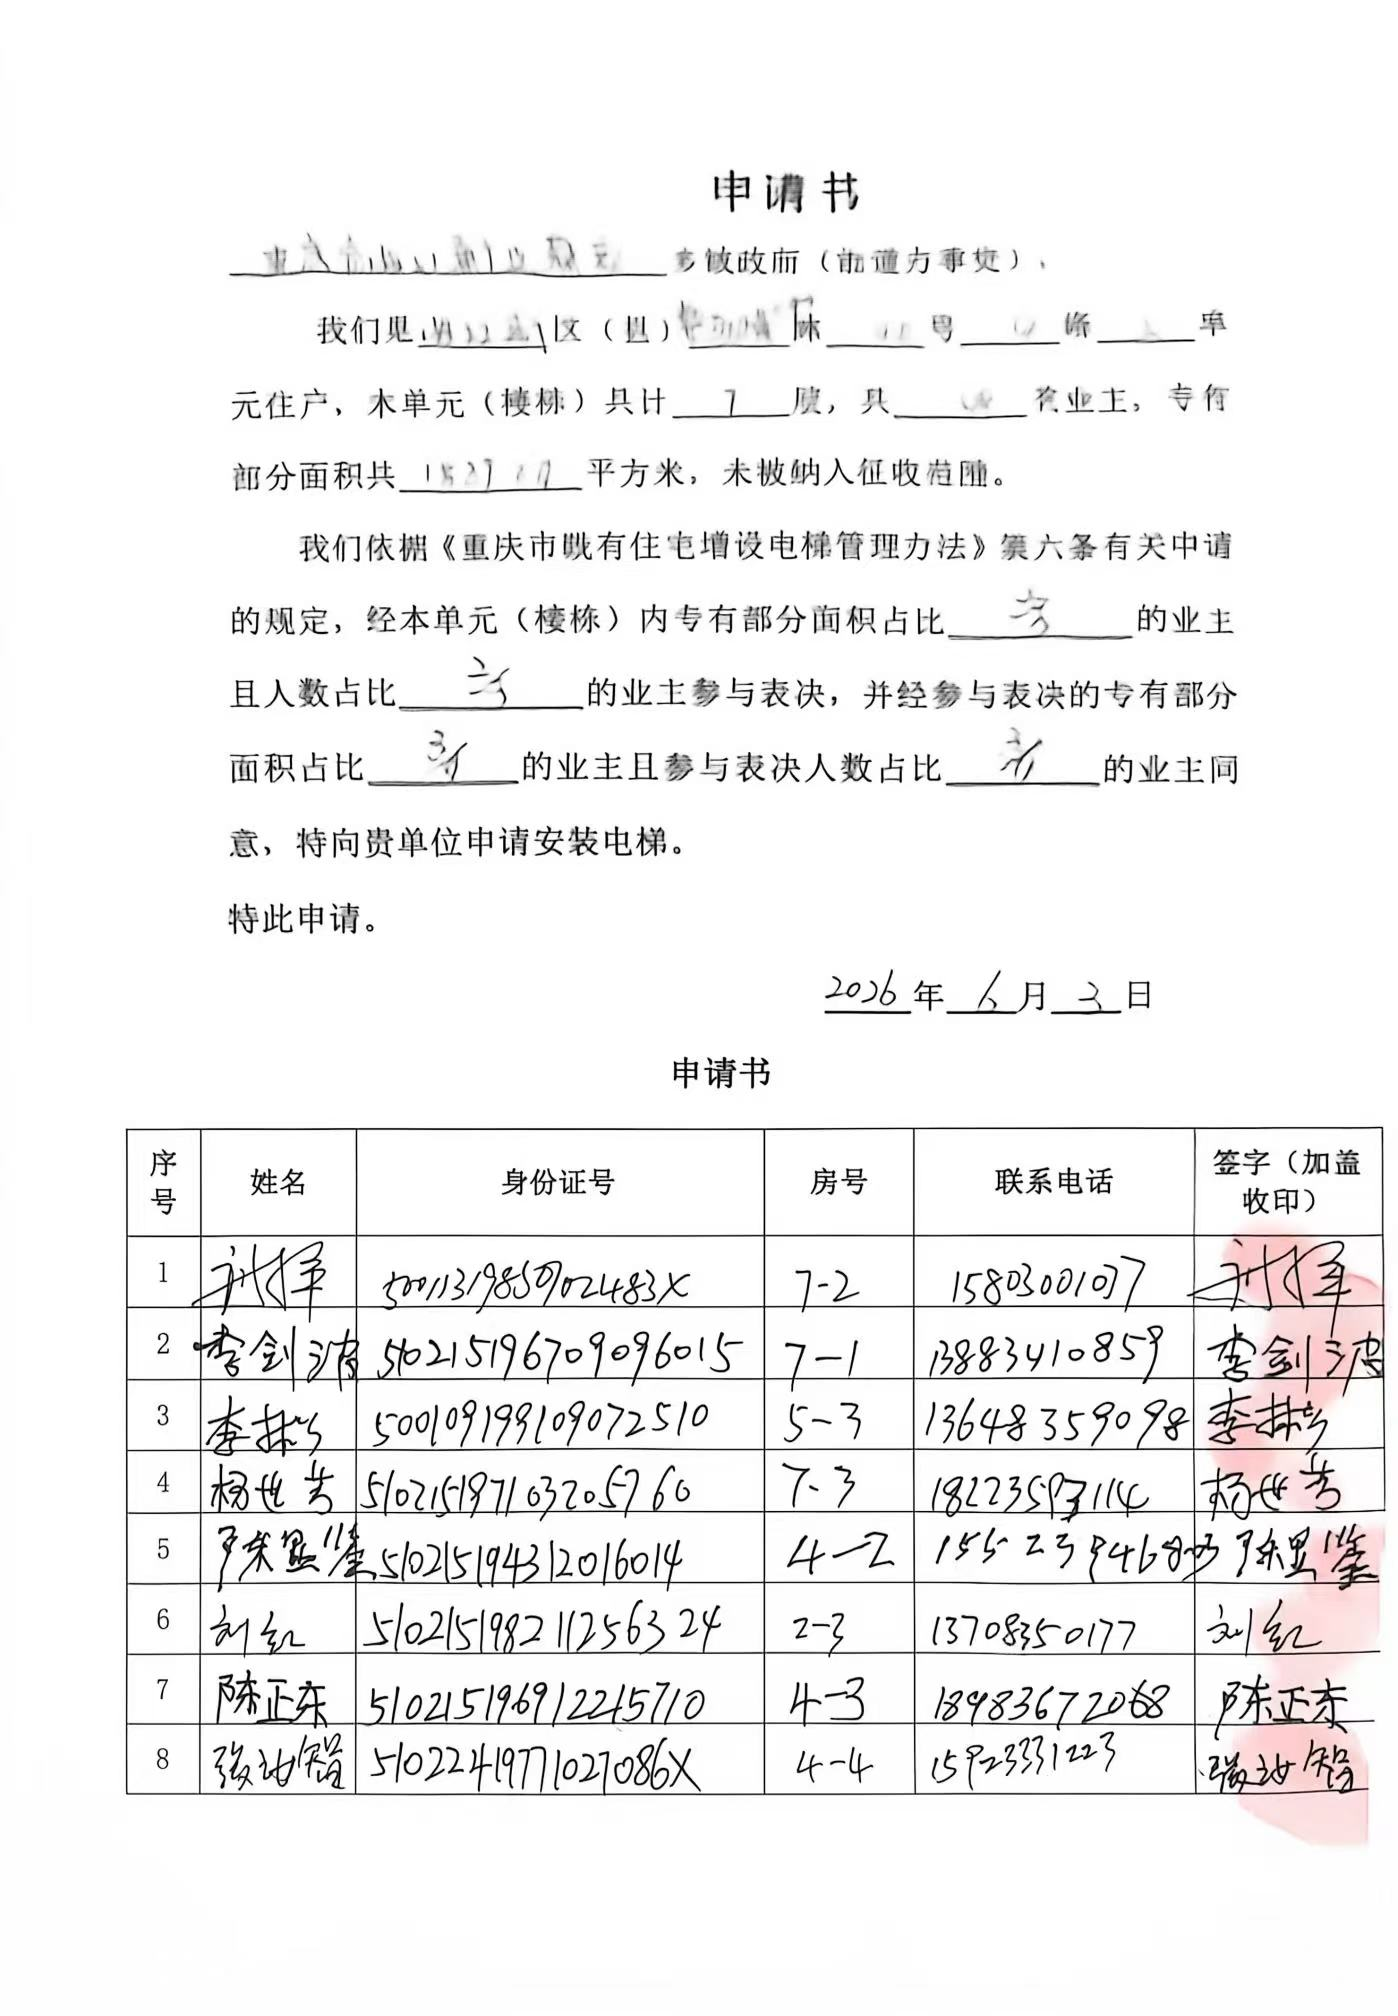 申请书
乡镇政府（街道办事处）：
我们是 区（县） 号 栋 单
元住户，本单元（楼栋）共计 7 层，共 名业主，专有
部分面积共 平方米，未被纳入征收范围。
我们依据《重庆市既有住宅增设电梯管理办法》第六条有关申请
的规定，经本单元（楼栋）内专有部分面积占比 的业主
且人数占比 的业主参与表决，并经参与表决的专有部分
面积占比 的业主且参与表决人数占比 的业主同
意，特向贵单位申请安装电梯。
特此申请。
2026 年 6 月 3 日
申请书
序号 姓名 身份证号 房号 联系电话 签字（加盖收印）
1 50011319850902483X 7-2 15803001077
2 李剑波 510215196709096015 7-1 13883410859 李剑波
3 李 500109199109072510 5-3 13648359098 李
4 杨世芳 510215197103205760 7-3 18223593114 杨世芳
5 陈显鉴 510215194312016014 4-2 陈显鉴
6 刘红 510215198211256324 2-3 13708350177 刘红
7 陈正东 510215196912215710 4-3 18983672068 陈正东
8 张 51022419771027086X 4-4 15923331223 张